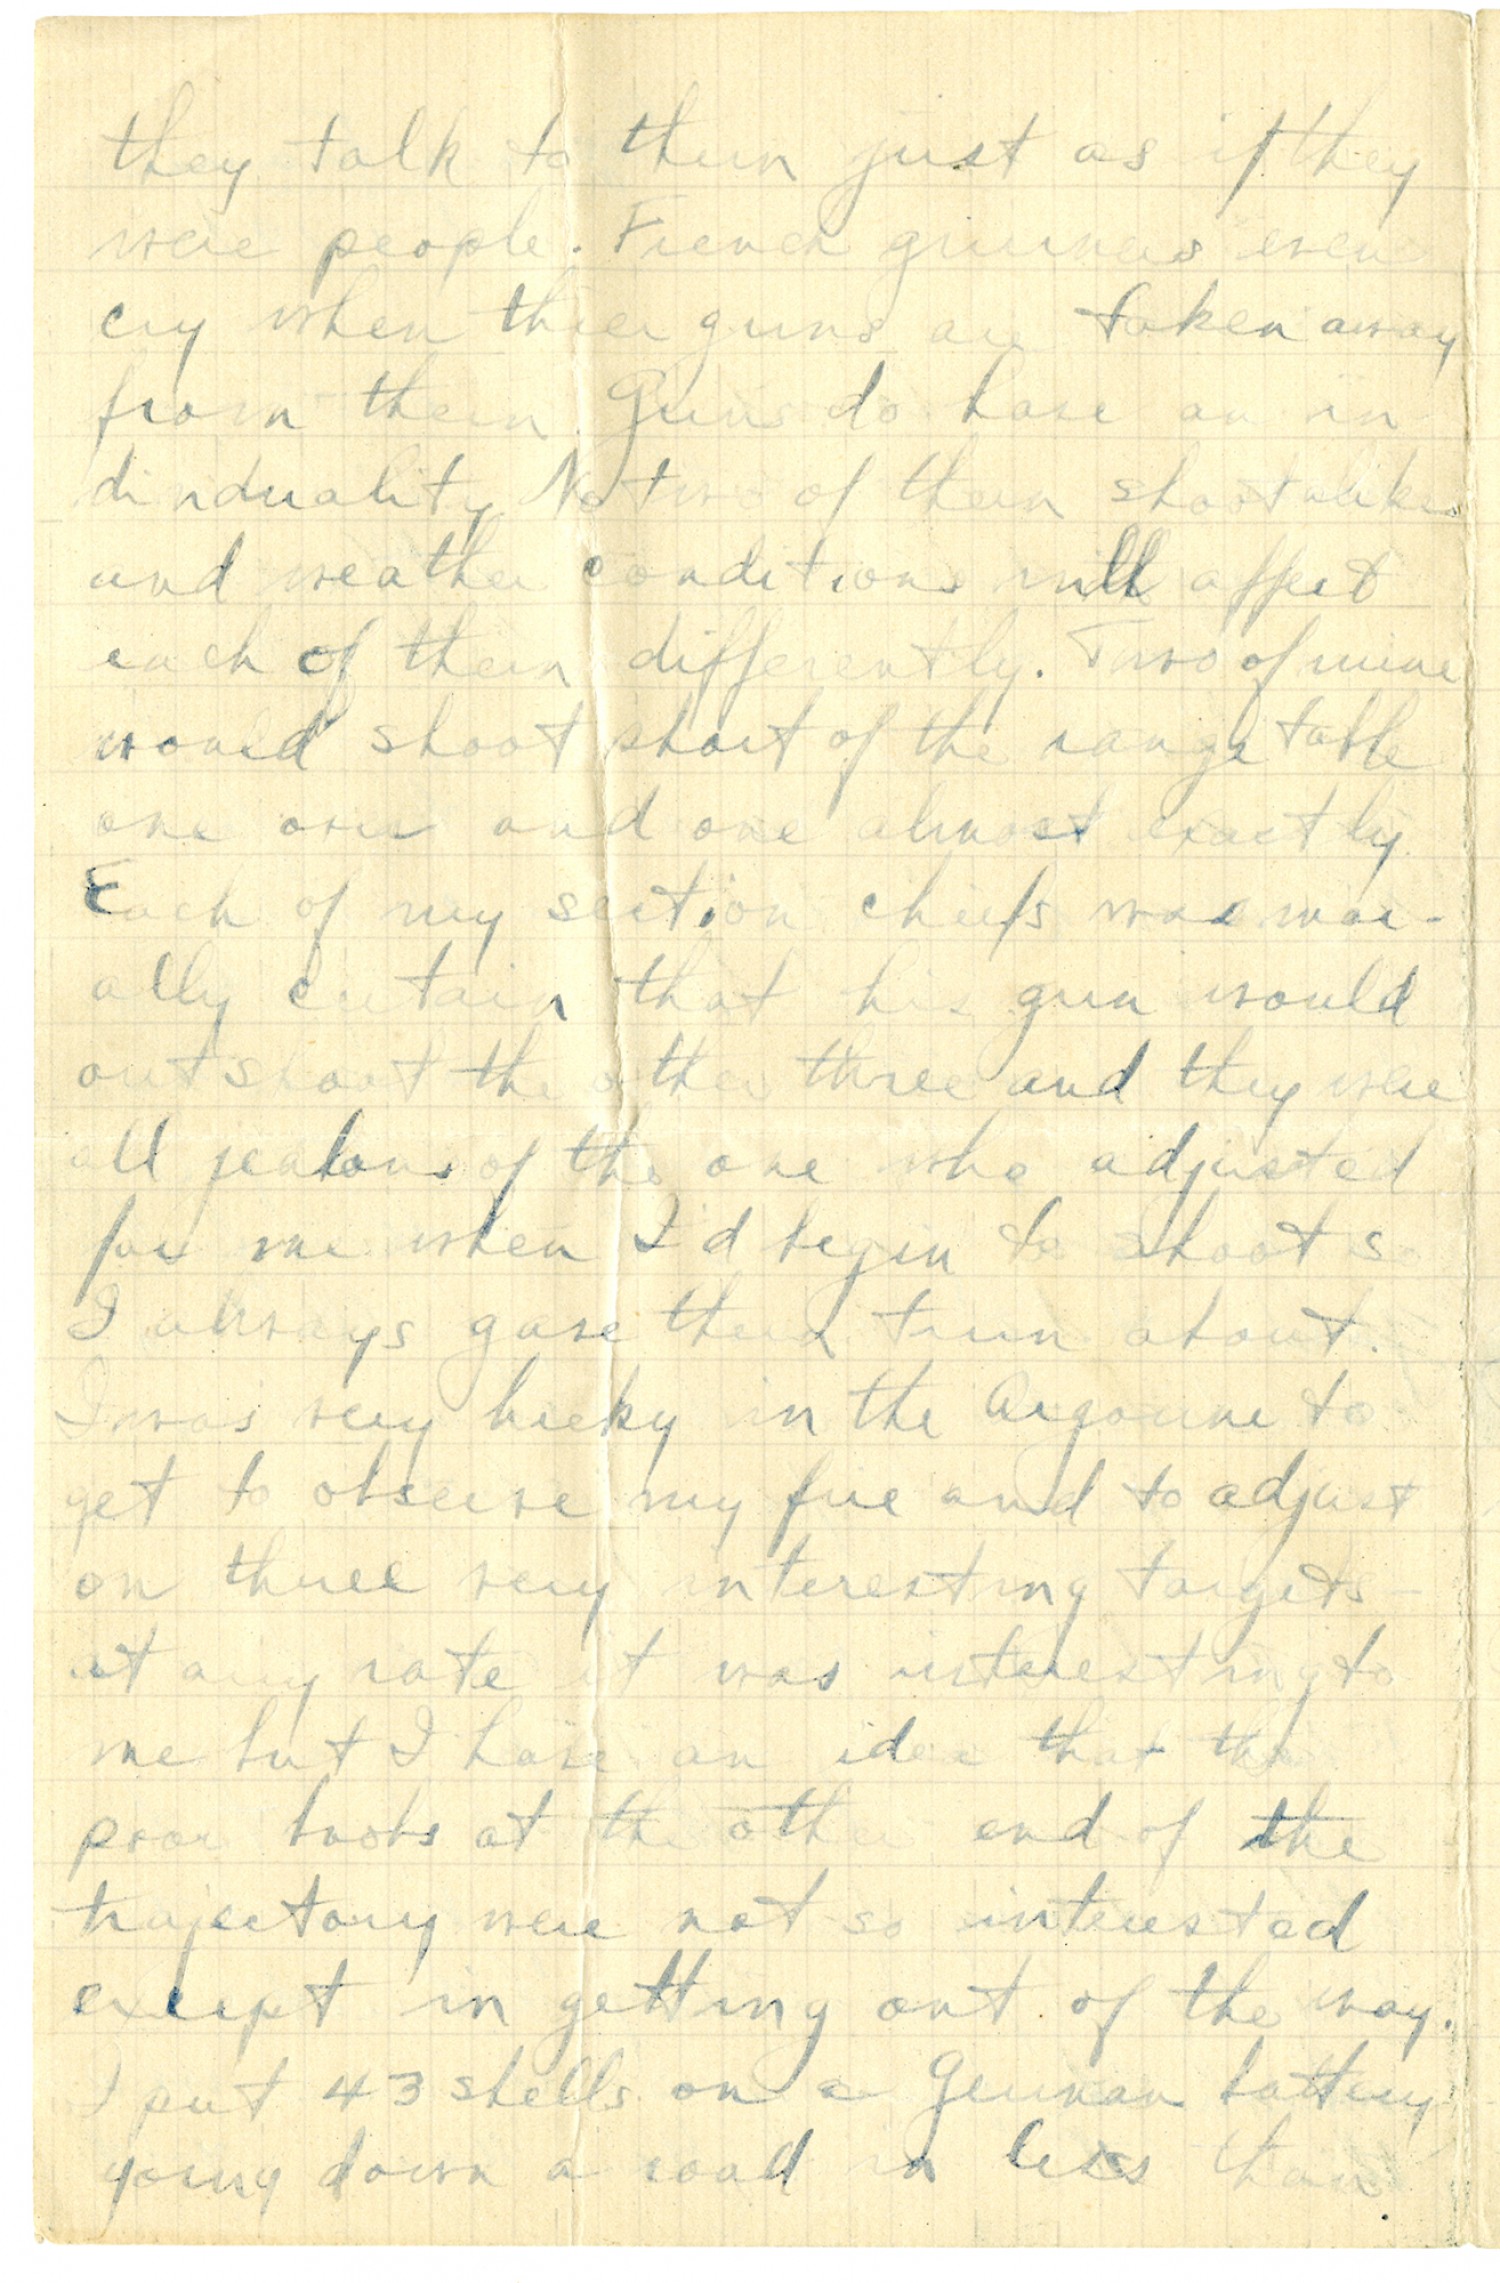 they talk to them just as if they
were people. French gunners even
cry when thier guns are taken away
from them. Guns do have an in
dividuality. No two of them shoot alike
and weather conditions will affect
each of them differently. Two of mine
would shoot short of the range table
one over and one almost exactly.
Each of my section chiefs was mor-
ally certain that his gun would
outshoot the other three and they were
all jealous of the one who adjusted
for me when I'd begin to shoot so
I always gave them turn about.
I was very lucky in the Argonne to
get to observe my fire and to adjust
on three very interesting targets -
at any rate it was interesting to
me but I have an idea that the
poor boobs at the other end of the
trajectory were not so interested
except in getting out of the way.
I put 43 shells on a German battery
going down a road in less than